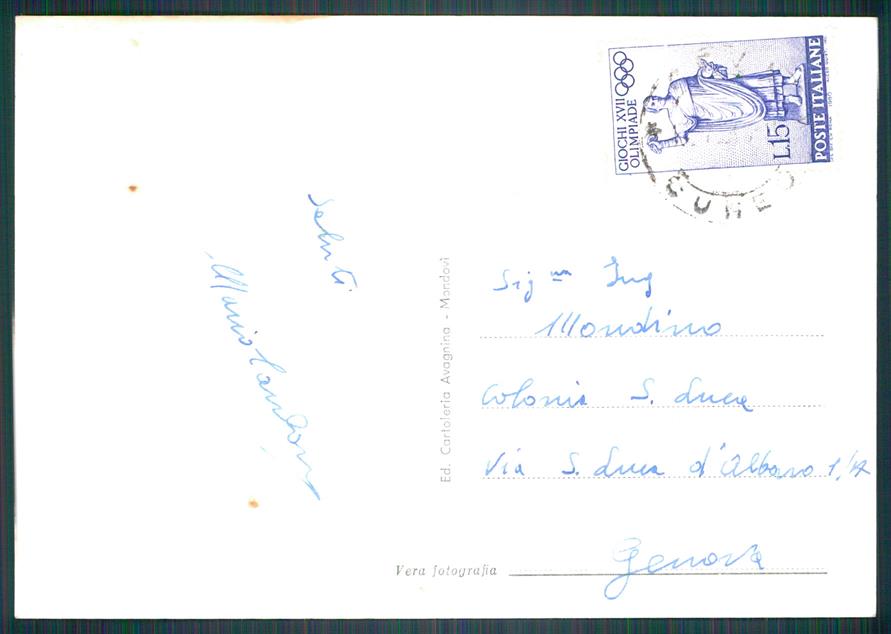 GIOCHI XVII
OLIMPIADE
L.15
POSTE ITALIANE
CUNEO
Saluti
Mario
Ed. Cartoleria Avagnina - Mondovì
Sig.na Ing
Mondino
Colonia S. Luca
Via S. Luca d'Albaro 1/
Genova
Vera fotografia